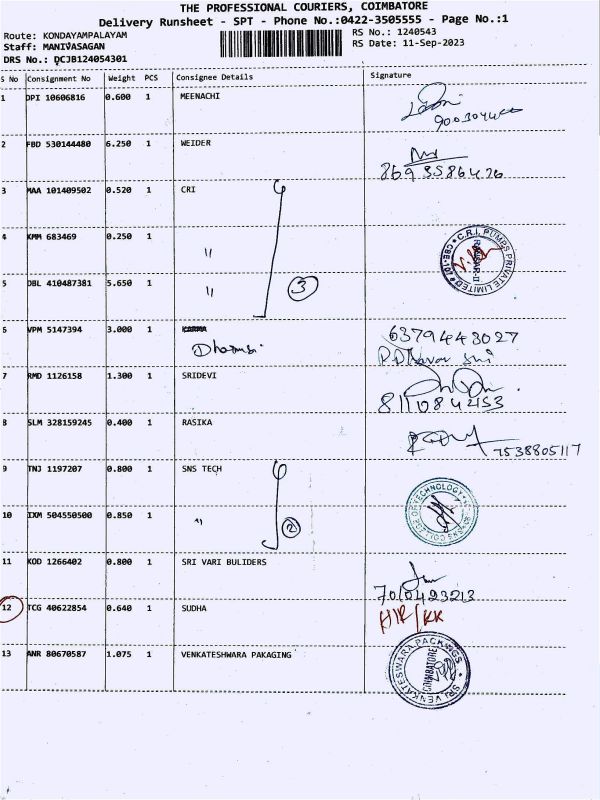 THE PROFESSIONAL COURIERS, COIMBATORE
Delivery Runsheet - SPT - Phone No.:0422-3505555 - Page No.:1
Route: KONDAYAMPALAYAM RS No.: 1240543
Staff: MANIVASAGAN RS Date: 11-Sep-2023
DRS No.: QCJB124054301
S No Consignment No Weight PCS Consignee Details Signature
1 DPI 10606816 0.600 1 MEENACHI
2 FBD 530144480 6.250 1 WEIDER
8693586426
3 MAA 101409502 0.520 1 CRI
4 KMM 683469 0.250 1 "
C.R.I. PUMPS PRIVATE LIMITED
5 DBL 410487381 5.650 1 " 3
6 VPM 5147394 3.000 1 KARMA 6379443027
7 RMD 1126158 1.300 1 SRIDEVI
8110842153
8 SLM 328159245 0.400 1 RASIKA
7538805117
9 TNJ 1197207 0.800 1 SNS TECH
SNS COLLEGE OF TECHNOLOGY
10 IXM 504550500 0.850 1 " 2
11 KOD 1266402 0.800 1 SRI VARI BULIDERS
7010423213
12 TCG 40622854 0.640 1 SUDHA
HIR/KK
13 ANR 80670587 1.075 1 VENKATESHWARA PAKAGING
SRI VENKATESWARA PACKINGS
COIMBATORE